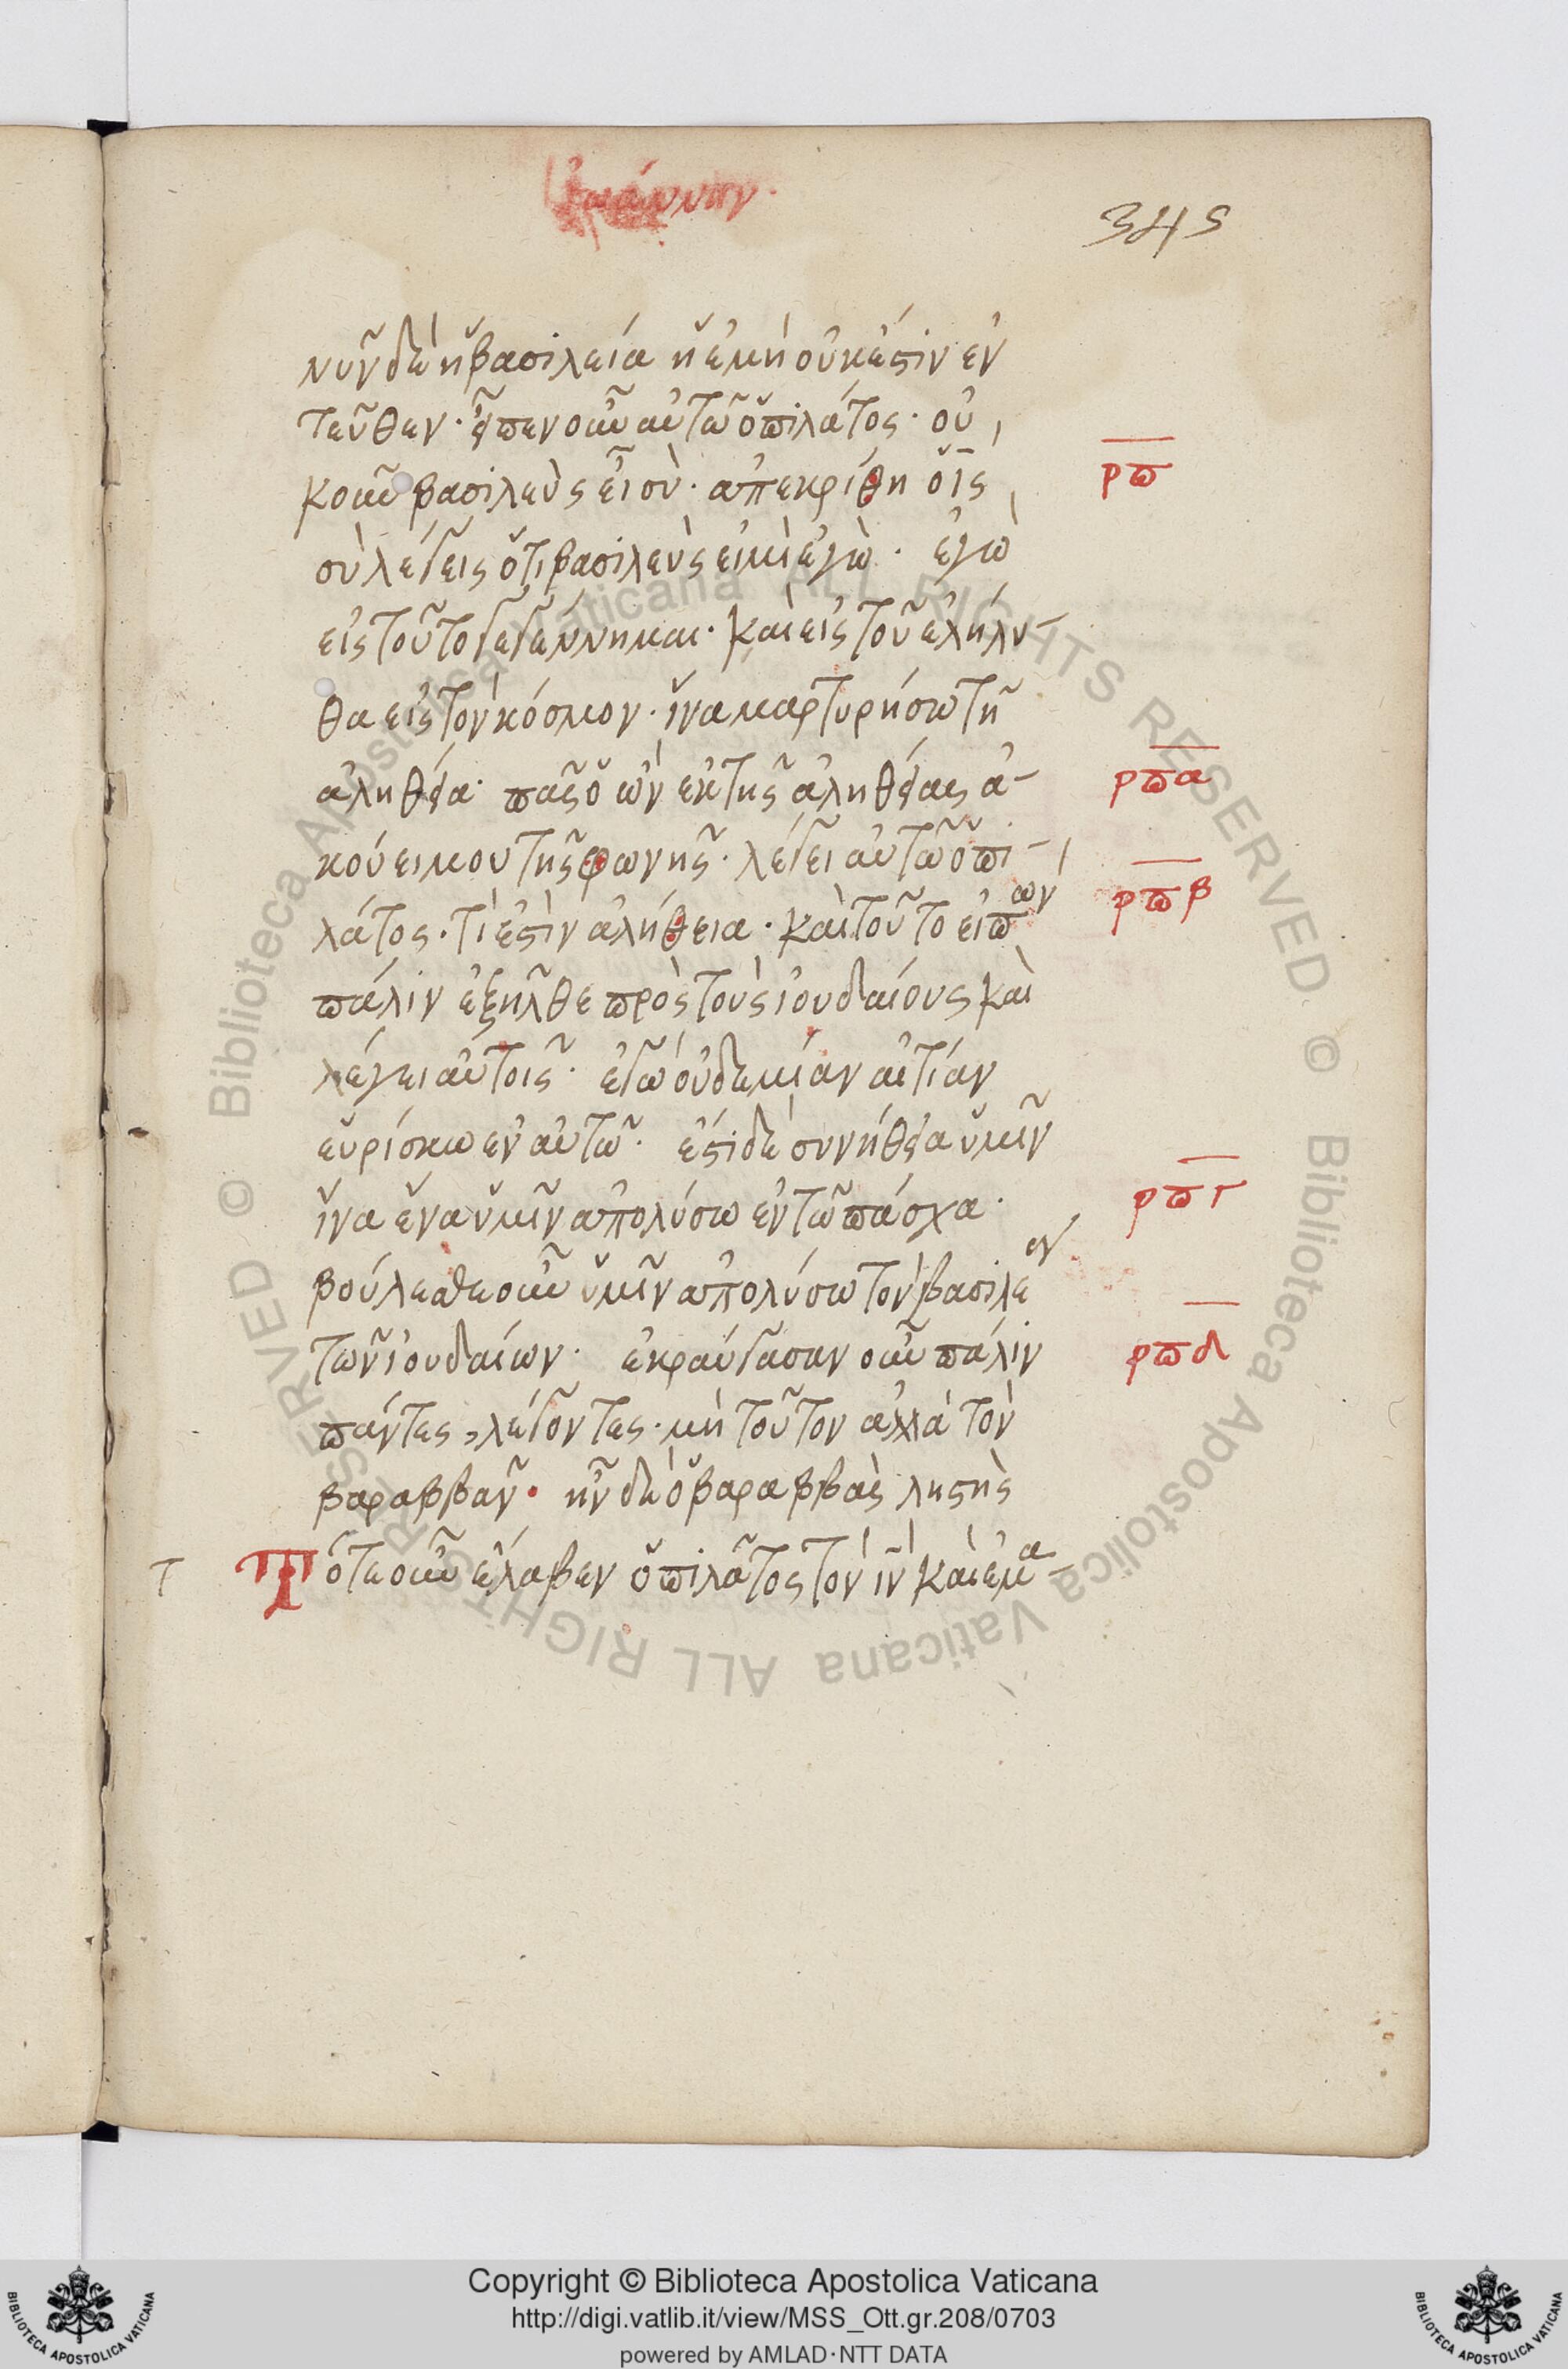 Ἰωάννην.
345
νῦν δὲ ἡ βασιλεία ἡ ἐμὴ οὐκ ἔστιν ἐν
τεῦθεν· εἶπεν οὖν αὐτῶ ὁ πιλάτος· οὐ
κοῦν βασιλεὺς εἶ σὺ· ἀπεκρίθη ὁ ις
ρπ
σὺ λέγεις ὅτι βασιλεὺς εἰμὶ ἐγὼ· ἐγὼ
εἰς τοῦτο γεγέννημαι· καὶ εἰς τοῦ ἐλήλυ-
θα εἰς τὸν κόσμον· ἵνα μαρτυρήσω τῆ
ἀληθεία· πᾶς ὁ ὢν ἐκ τῆς ἀληθείας ἀ-
ρπα
κούει μου τῆς φωνῆς· λέγει αὐτῶ ὁ πι-
ρπβ
λάτος· τί ἐστὶν ἀλήθεια· καὶ τοῦτο εἰπὼν
πάλιν ἐξῆλθε πρὸς τοὺς ἰουδαίους καὶ
λέγει αὐτοῖς· ἐγὼ οὐδεμίαν αἰτίαν
εὑρίσκω ἐν αὐτῶ· ἔστι δὲ συνήθεια ὑμῖν
ἵνα ἕνα ὑμῖν ἀπολύσω ἐν τῶ πάσχα·
ρπγ
βούλεσθε οὖν ὑμῖν ἀπολύσω τὸν βασιλέα
τῶν ἰουδαίων· ἐκραύγασαν οὖν πάλιν
ρπδ
πάντες, λέγοντες· μὴ τοῦτον ἀλλὰ τὸν
βαραββᾶν· ἦν δὲ ὁ βαραββὰς ληστὴς
τ Τότε οὖν ἔλαβεν ὁ πιλᾶτος τὸν ιν καὶ ἐμα-
Copyright © Biblioteca Apostolica Vaticana
http://digi.vatlib.it/view/MSS_Ott.gr.208/0703
powered by AMLAD·NTT DATA
© Biblioteca Apostolica Vaticana ALL RIGHTS RESERVED © Biblioteca Apostolica Vaticana ALL RIGHTS RESERVED
BIBLIOTECA APOSTOLICA VATICANA
BIBLIOTECA APOSTOLICA VATICANA